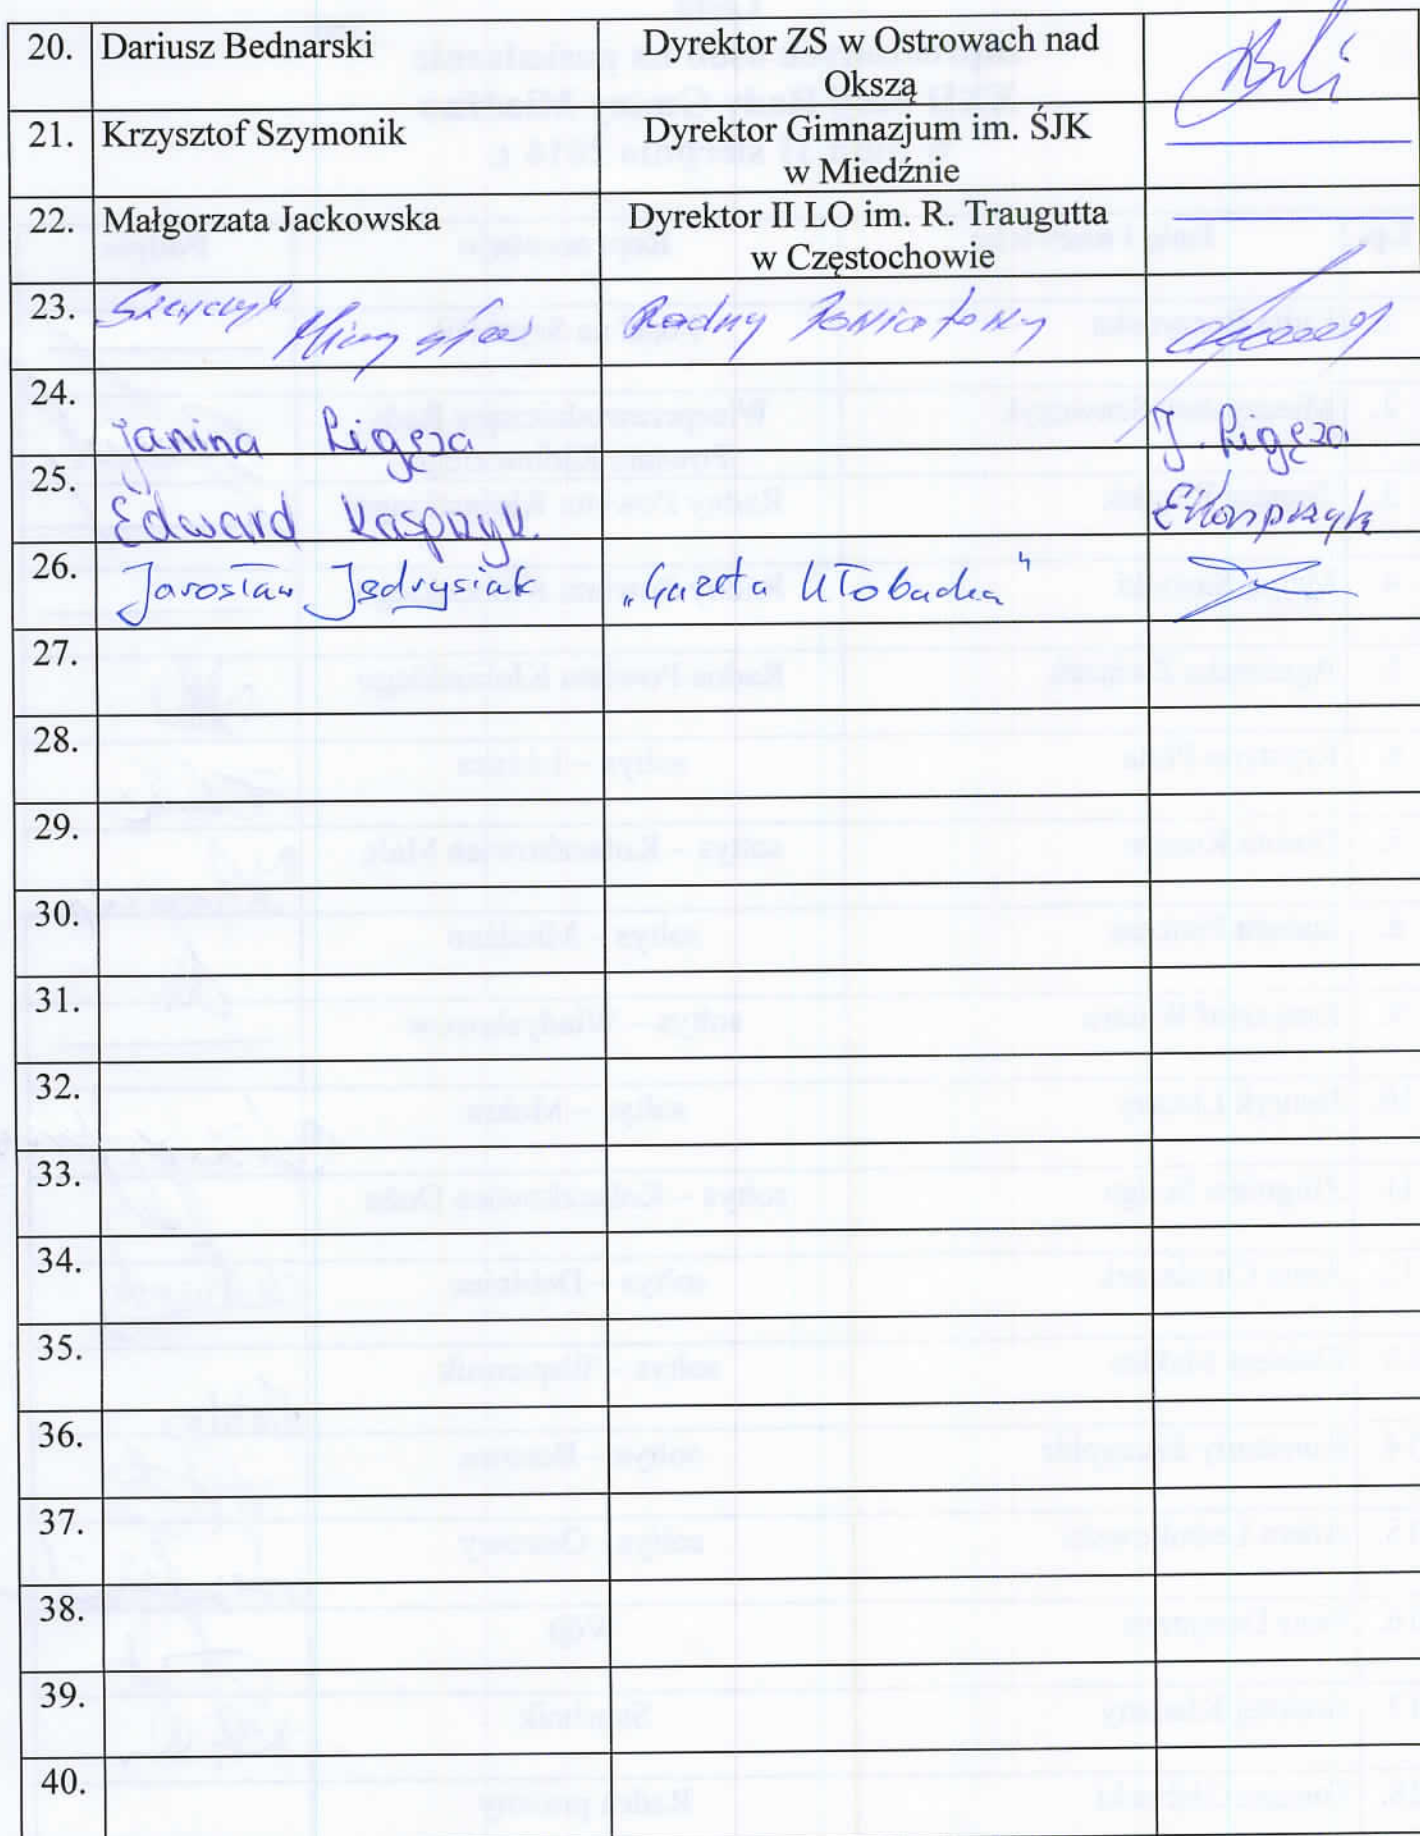 20. Dariusz Bednarski Dyrektor ZS w Ostrowach nad
Okszą
21. Krzysztof Szymonik Dyrektor Gimnazjum im. ŚJK
w Miedźnie
22. Małgorzata Jackowska Dyrektor II LO im. R. Traugutta
w Częstochowie
23. Radny Powiatowy
24.
Janina Ligęza J. Ligęza
25.
Edward Kasprzyk. EKasprzyk
26. Jarosław Jędrysiak „Gazeta Kłobucka"
27.
28.
29.
30.
31.
32.
33.
34.
35.
36.
37.
38.
39.
40.